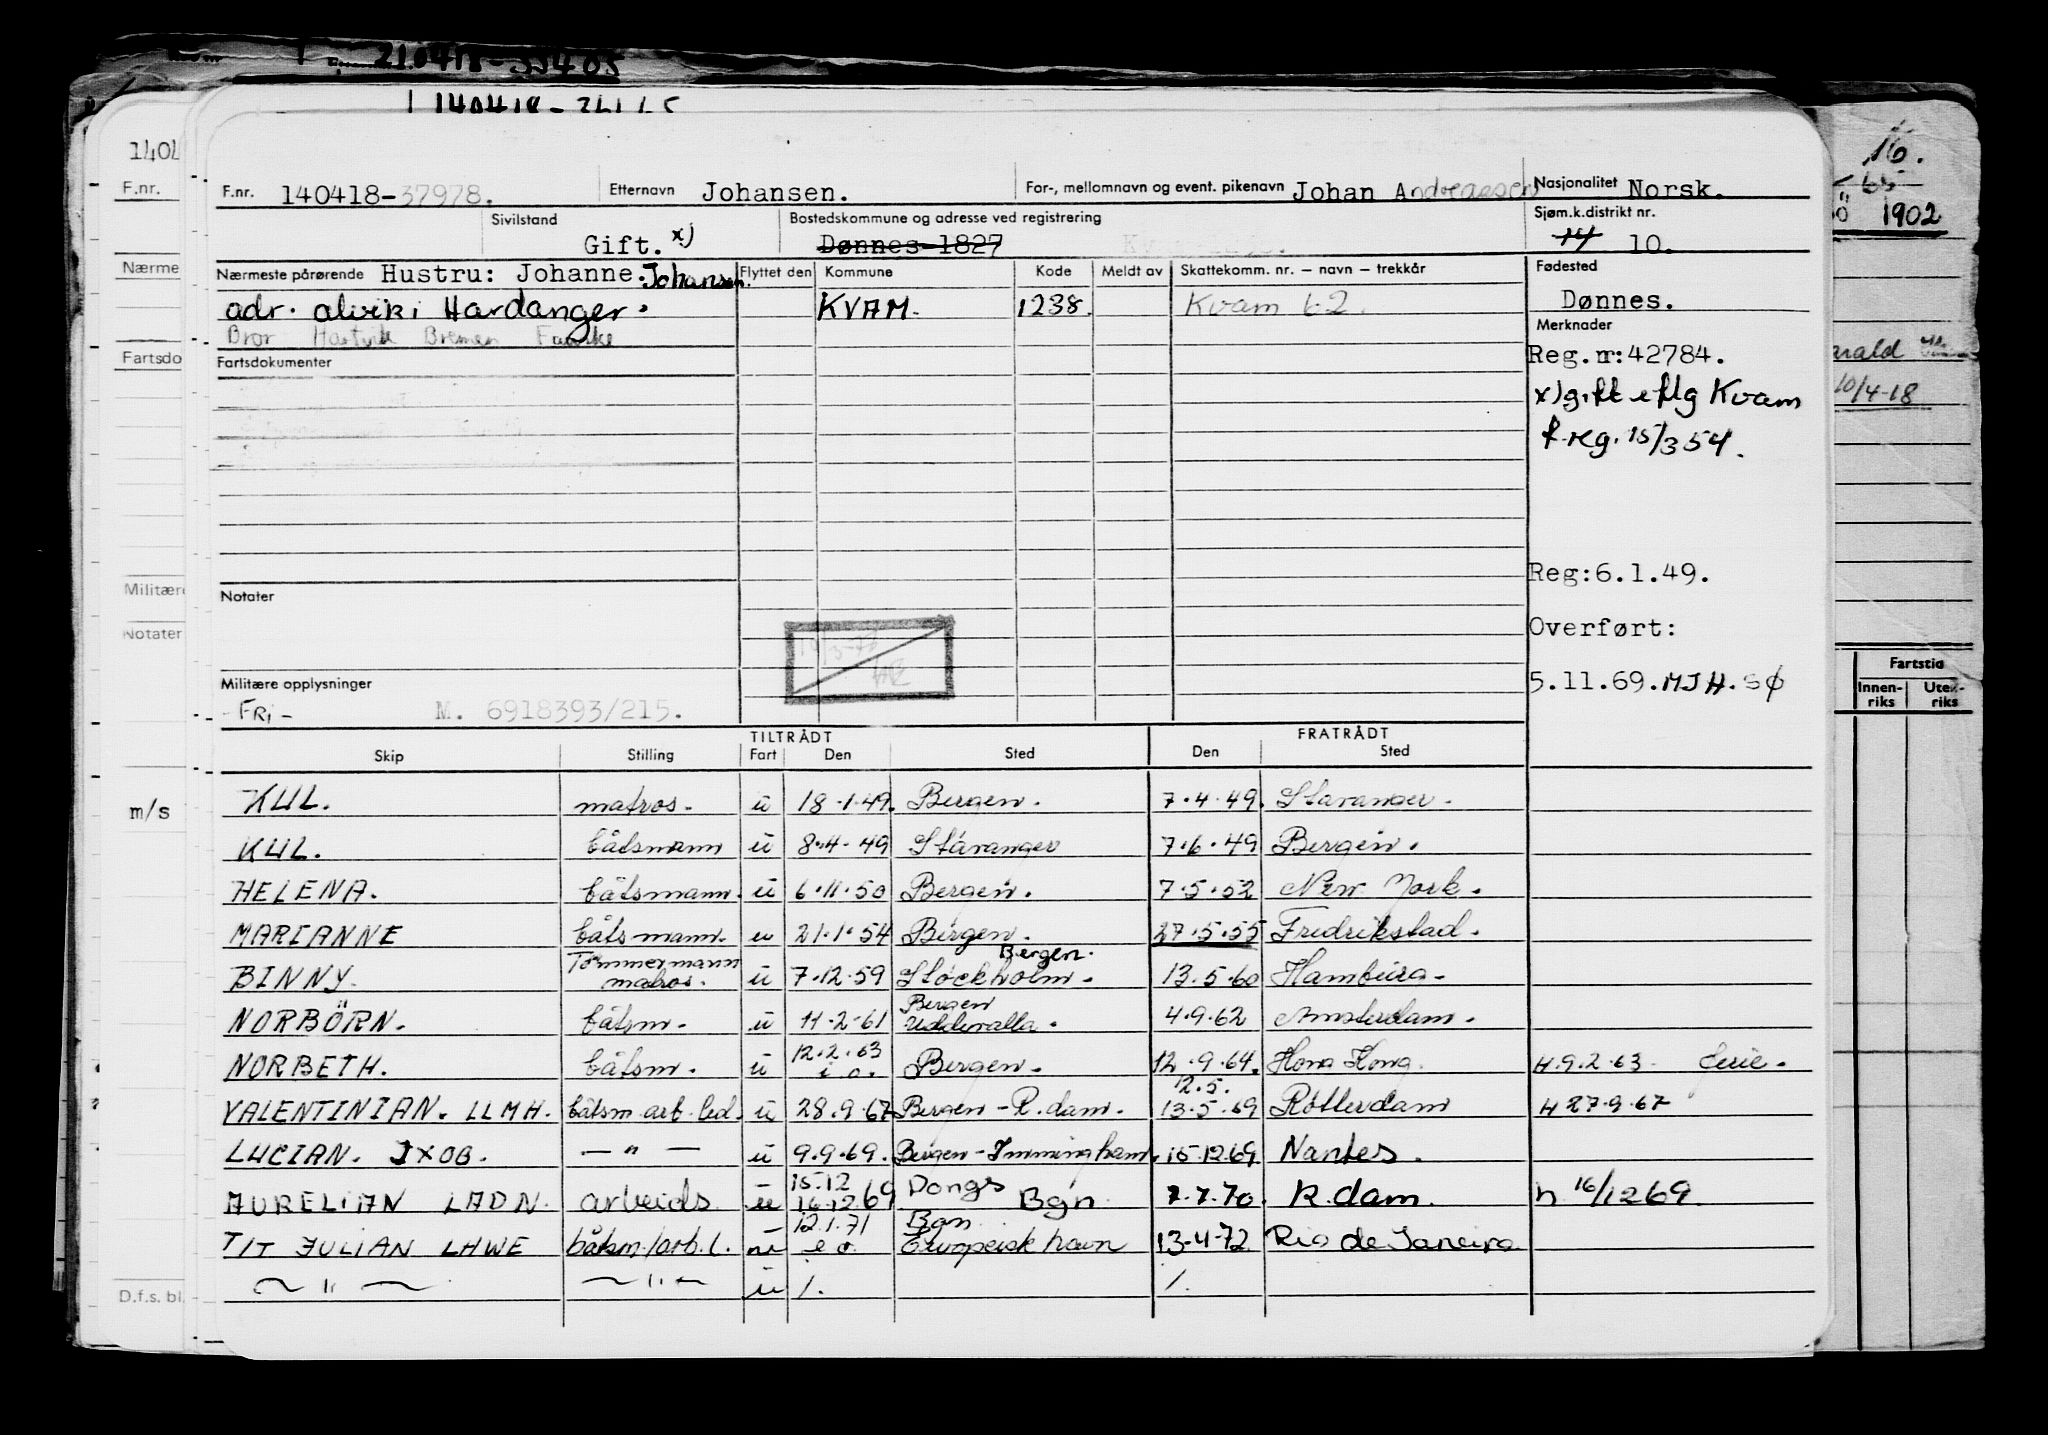 21.0418-33405
140418-
1404
F.nr.
F.nr. 140418-37978. Etternavn Johansen. For-, mellomnavn og event. pikenavn Johan Andreassen Nasjonalitet Norsk.
16.
1902
Sivilstand Gift. x) Bostedskommune og adresse ved registrering Dønnes-1827 Sjøm.k.distrikt nr. 14 10.
Nærme
Nærmeste pårørende Hustru: Johanne. Johansen. Flyttet den Kommune Kode Meldt av Skattekomm. nr. – navn – trekkår Fødested
adr. alvik i Hardanger. KVAM. 1238. Kvam 62. Dønnes.
Bror Hartvik Bremen Fauske Merknader
Fartsdo
Fartsdokumenter Reg.nr:42784.
arald
10/4-18
x) gift iflg Kvam
f.reg. 15/3 54.
Reg:6.1.49.
Militære
Notater
Notater
Overført:
Militære opplysninger 5.11.69. MJH. SØ
- FRI - M. 6918393/215.
Fartstid
Innen-riks Uten-riks
TILTRÅDT FRATRÅDT
Skip Stilling Fart Den Sted Den Sted
m/s
KUL. matros. u 18.1.49. Bergen. 7.4.49. Stavanger.
KUL. båtsmann u 8.4.49 Stavanger 7.6.49 Bergen.
HELENA. båtsmann. u 6.11.50 Bergen. 7.5.52 New York.
MARIANNE båtsmann. u 21.1.54 Bergen. 27.5.55 Fredrikstad.
BINNY. Tømmermann matros. u 7.12.59 Bergen. Stockholm. 13.5.60 Hamburg.
NORBÖRN. båtsm. u 11.2.61 Bergen Uddevalla. 4.9.62 Amsterdam.
NORBETH. båtsm. u 12.2.63 i.o. Bergen. 12.9.64. Hong Kong. H.9.2.63 ferie.
VALENTINIAN. LLMH. båtsm. arb. led. u 28.9.67 Bergen - R.dam. 12.5. 13.5.69 Rotterdam H 27.9.67
LUCIAN. JXOB. — " — u 9.9.69. Bergen - Immingham. 15.12.69 Nantes.
AURELIAN LADN. arbeids u 15.12 16.12.69 Donges Bgn 7.7.70. R.dam. h 16/12 69.
TIT JULIAN LHWE båtsm./arb.l. 12.1.71 e o. Bgn. Europeisk havn 13.4.72 Rio de Janeiro
— " — — " — u 1. 1.
D.f.s. bl.